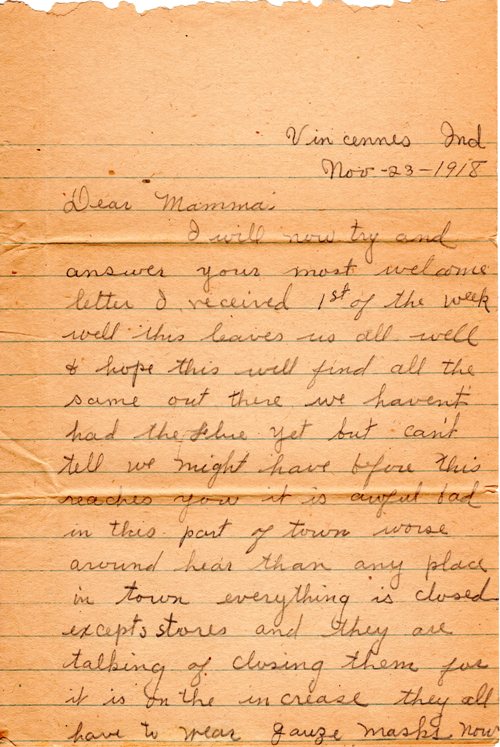 Vincennes Ind
Nov-23-1918
Dear Mamma.
I will now try and
answer your most welcome
letter I received 1st of the week
well this leaves us all well
& hope this will find all the
same out there we havent
had the flue yet but can't
tell we might have before this
reaches you it is awful bad
in this part of town worse
around hear than any place
in town everything is closed
excepts stores and they are
talking of closing them for
it is on the increase they all
have to wear gauze masks now